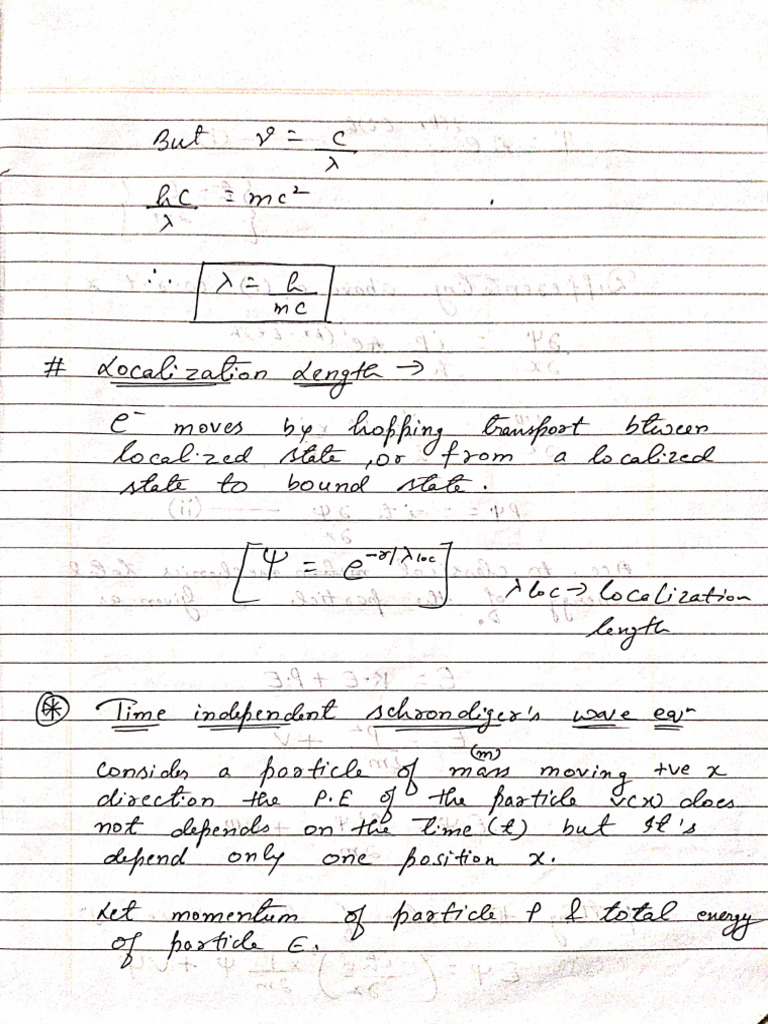 But ν = c/λ
hc/λ = mc²
∴ λ = h/mc
# Localization Length →
e⁻ moves by hopping transport btween
localized state, or from a localized
state to bound state.
[Ψ = e^(-r/λloc)]
λloc → localization
length
⊛ Time independent schrondiger's wave eqⁿ
(m)
consider a particle of mass moving +ve x
direction the P.E of the particle v(x) does
not depends on the time (t) but It's
depend only one position x.
Let momentum of particle P & total energy
of particle E.